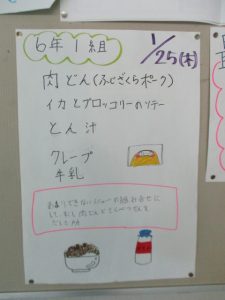 6年1組
1/25(木)
肉どん(ふじざくらポーク)
イカとブロッコリーのソテー
とん汁
クレープ
牛乳